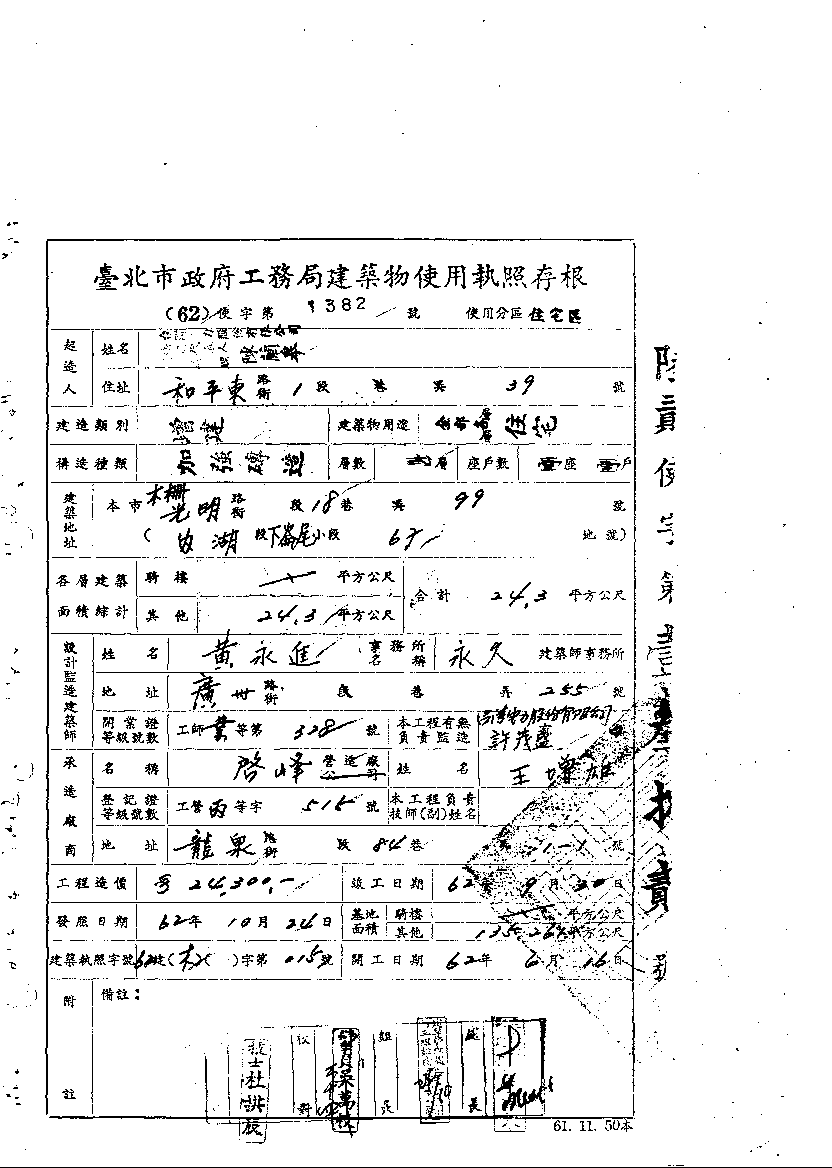 臺北市政府工務局建築物使用執照存根
(62)使字第 1382 號 使用分區 住宅區
起造人 姓名
住址 和平東 路街 1 段 巷 弄 39 號
建造類別 增建 建築物用途 住宅
構造種類 加強磚造 層數 層 座戶數 壹座 壹戶
建築地址 本市 木柵 光明 路街 段 18 巷 弄 99 號
( 內湖 段下崙尾小段 地號)
各層建築面積綜計 騎樓 平方公尺 合計 24.3 平方公尺
其他 24.3 平方公尺
設計監造建築師 姓名 黃永進 事務所名稱 永久 建築師事務所
地址 廣州 路街 段 巷 弄 255 號
開業證等級號數 工師 等第 328 號 本工程有無負責監造 許茂盛
承造廠商 名稱 啓峰 營造廠公司 姓名 王 雄
登記證等級號數 工營丙等字 515 號 本工程負責技師(副)姓名
地址 龍泉 路街 段 84 巷 弄 21-1 號
工程造價 24,300.- 竣工日期 62年 9月 30日
發照日期 62年 10月 24日 基地面積 騎樓 平方公尺
其他 135.264 平方公尺
建築執照字號 62建(木)( )字第 015 號 開工日期 62年 6月 16日
附註 備註：
技士杜洪辰 校對 組長 處長
61. 11. 50本